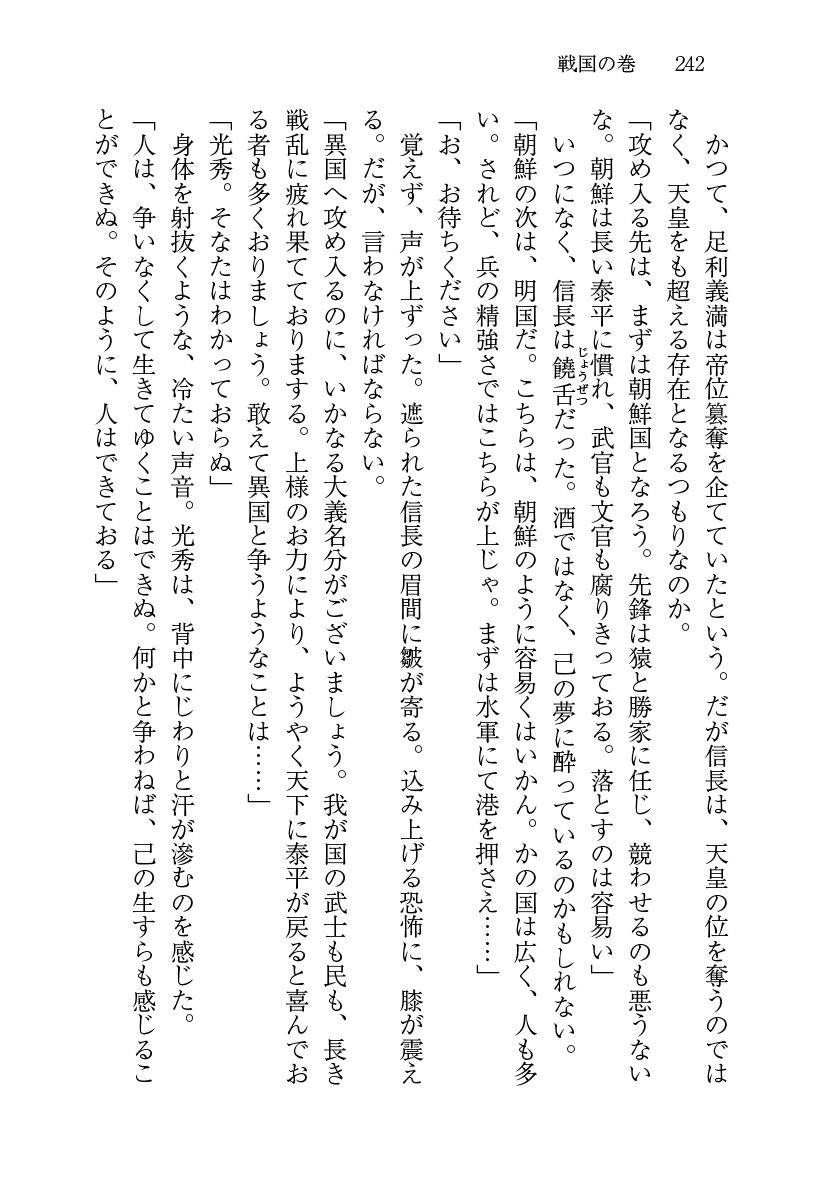 戦国の巻 242
かつて、足利義満は帝位簒奪を企てていたという。だが信長は、天皇の位を奪うのでは
なく、天皇をも超える存在となるつもりなのか。
「攻め入る先は、まずは朝鮮国となろう。先鋒は猿と勝家に任じ、競わせるのも悪うない
な。朝鮮は長い泰平に慣れ、武官も文官も腐りきっておる。落とすのは容易い」
いつになく、信長は饒舌だった。酒ではなく、己の夢に酔っているのかもしれない。
じょうぜつ
「朝鮮の次は、明国だ。こちらは、朝鮮のように容易くはいかん。かの国は広く、人も多
い。されど、兵の精強さではこちらが上じゃ。まずは水軍にて港を押さえ……」
「お、お待ちください」
覚えず、声が上ずった。遮られた信長の眉間に皺が寄る。込み上げる恐怖に、膝が震え
る。だが、言わなければならない。
「異国へ攻め入るのに、いかなる大義名分がございましょう。我が国の武士も民も、長き
戦乱に疲れ果てておりまする。上様のお力により、ようやく天下に泰平が戻ると喜んでお
る者も多くおりましょう。敢えて異国と争うようなことは……」
「光秀。そなたはわかっておらぬ」
身体を射抜くような、冷たい声音。光秀は、背中にじわりと汗が滲むのを感じた。
「人は、争いなくして生きてゆくことはできぬ。何かと争わねば、己の生すらも感じるこ
とができぬ。そのように、人はできておる」